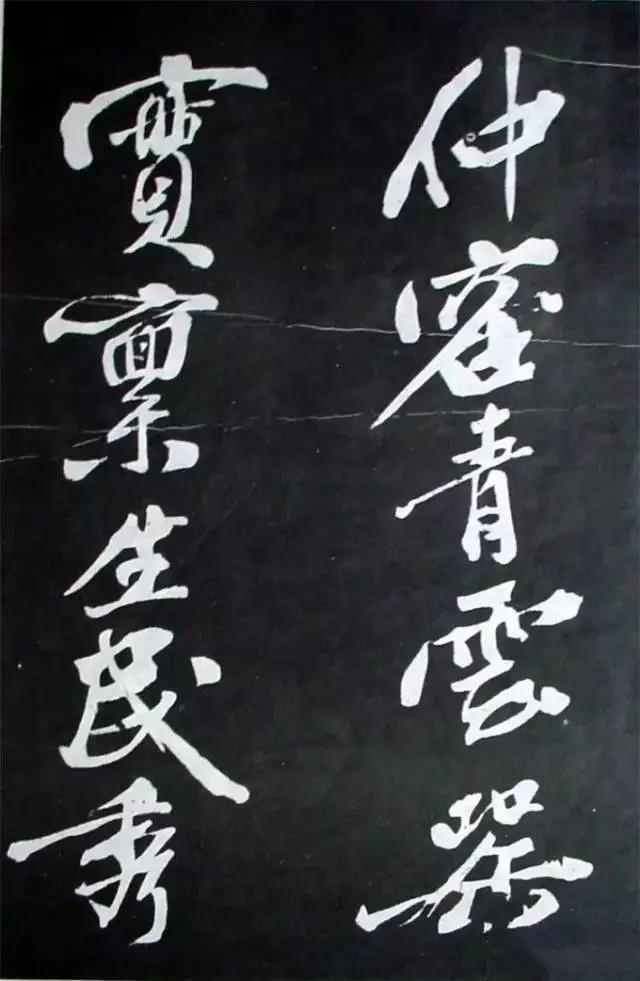 仲容青雲器
實禀生民秀